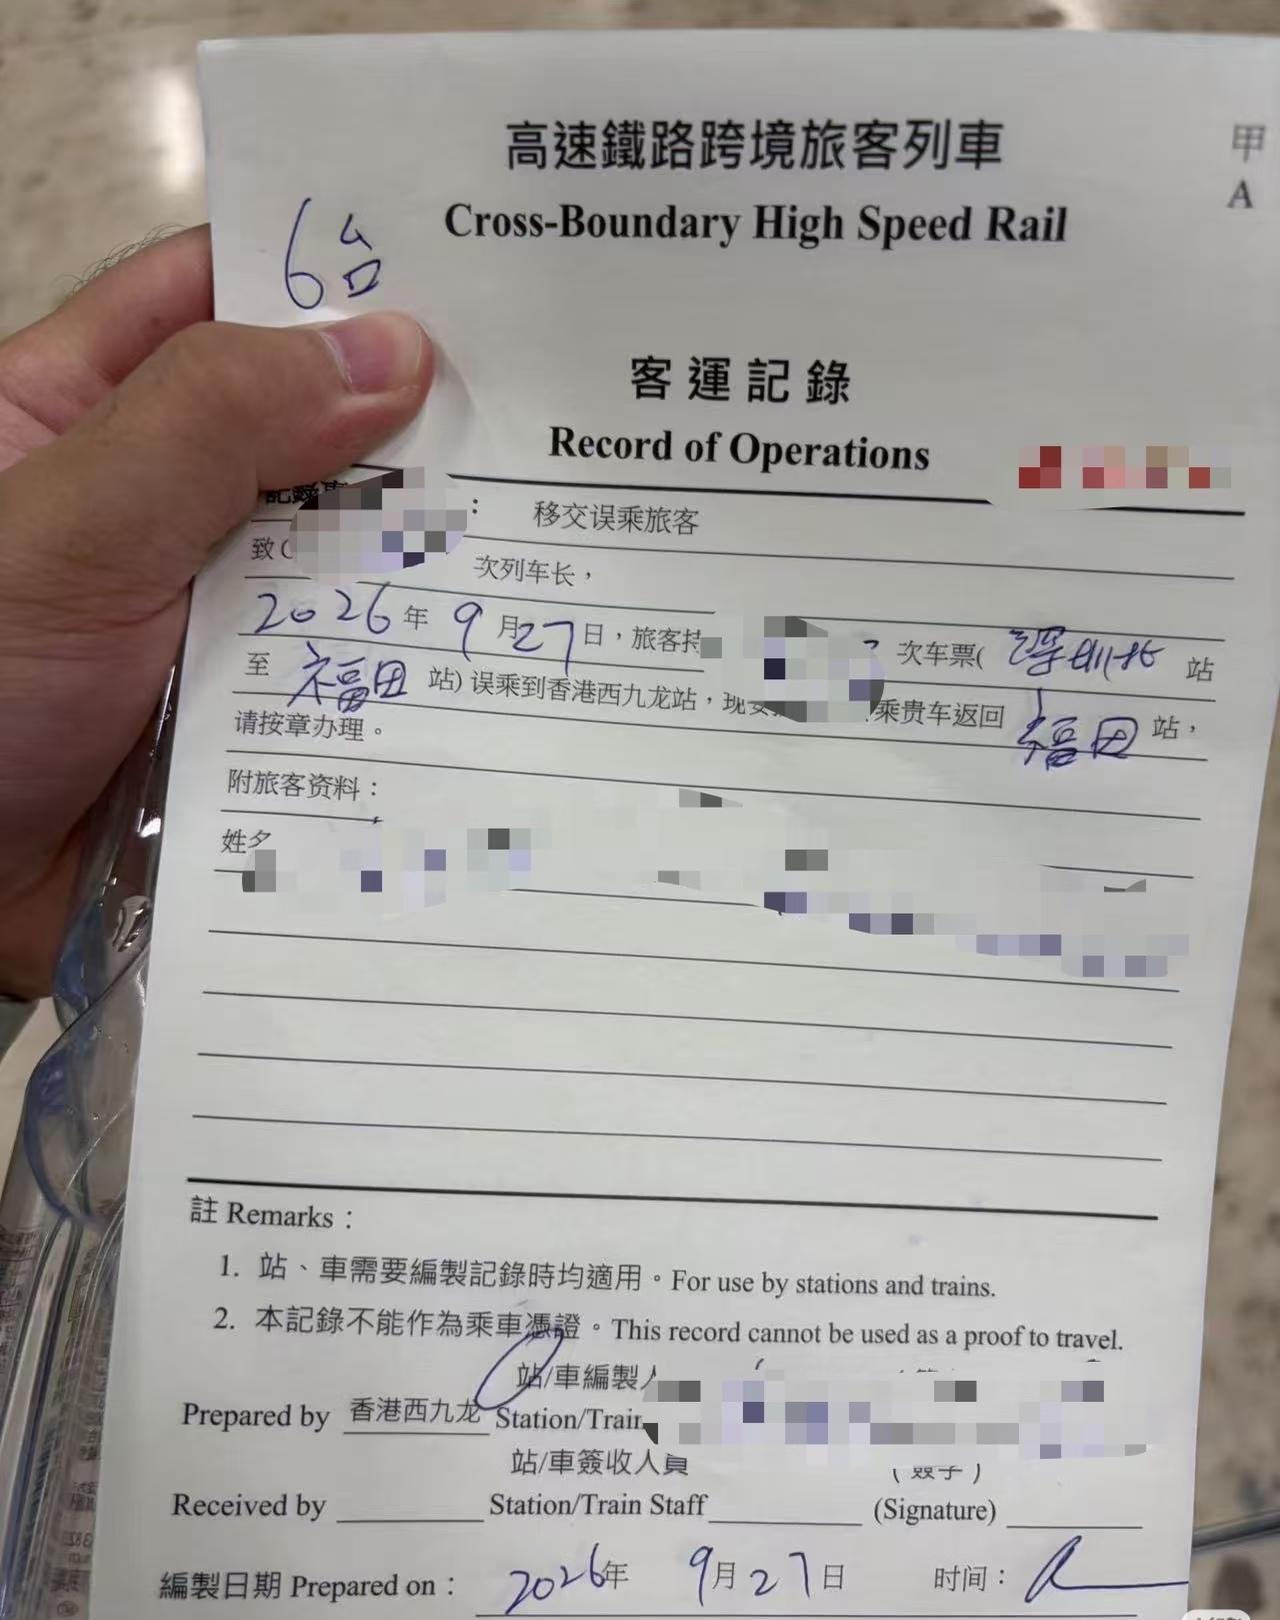 高速鐵路跨境旅客列車
甲
Cross-Boundary High Speed Rail
A
6台
客運記錄
Record of Operations
： 移交误乘旅客
致( 次列车长，
2026年 9月27日，旅客持 次车票( 深圳北 站
至 福田 站) 误乘到香港西九龙站，现 乘贵车返回 福田 站，
请按章办理。
附旅客资料：
姓名
註 Remarks：
1. 站、車需要編製記錄時均適用。For use by stations and trains.
2. 本記錄不能作為乘車憑證。This record cannot be used as a proof to travel.
站/車編製人
Prepared by 香港西九龙 Station/Train
站/車簽收人員 (簽字)
Received by Station/Train Staff (Signature)
編製日期 Prepared on： 2026年 9月27日 时间：